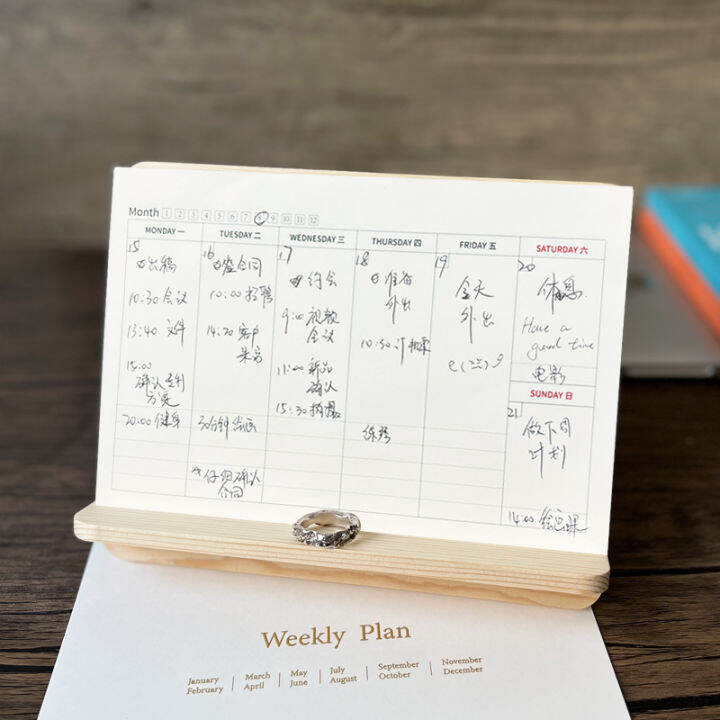 Month 1 2 3 4 5 6 7 8 9 10 11 12
MONDAY 一
TUESDAY 二
WEDNESDAY 三
THURSDAY 四
FRIDAY 五
SATURDAY 六
15
出稿
10:30 会议
13:40 文件
15:00
确认
方案
20:00 健身
16
签合同
10:00 招聘
14:20 客户
30分钟
仔细确认
合同
17
约会
9:00 视频
会议
11:00 新品
确认
15:30 拍摄
18
准备
外出
10:30 订机票
19
全天
外出
20
休息
Have a
good time
电影
SUNDAY 日
21
做下周
计划
14:00 绘画课
Weekly Plan
January
February
March
April
May
June
July
August
September
October
November
December